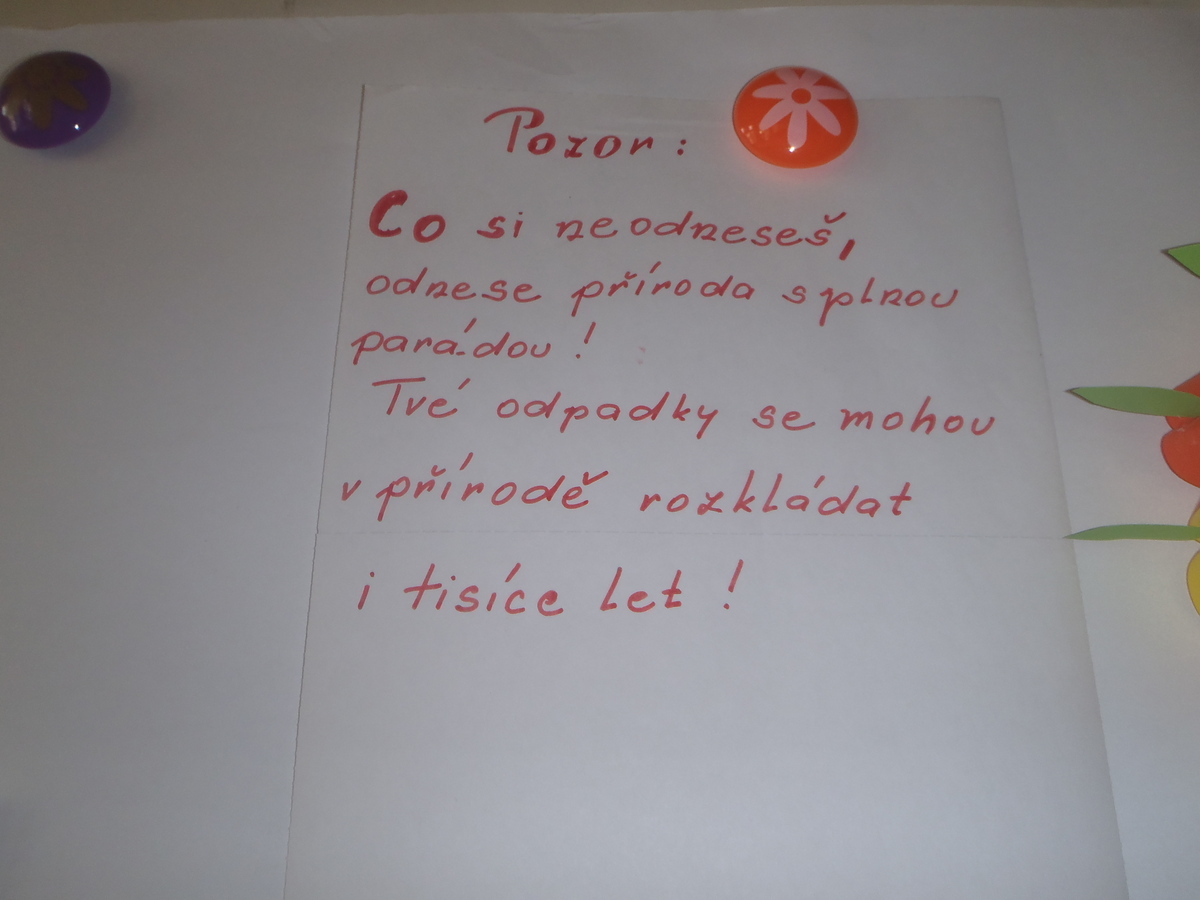 Pozor:
Co si neodneseš,
odnese příroda s plnou
parádou!
Tvé odpadky se mohou
v přírodě rozkládat
i tisíce let!